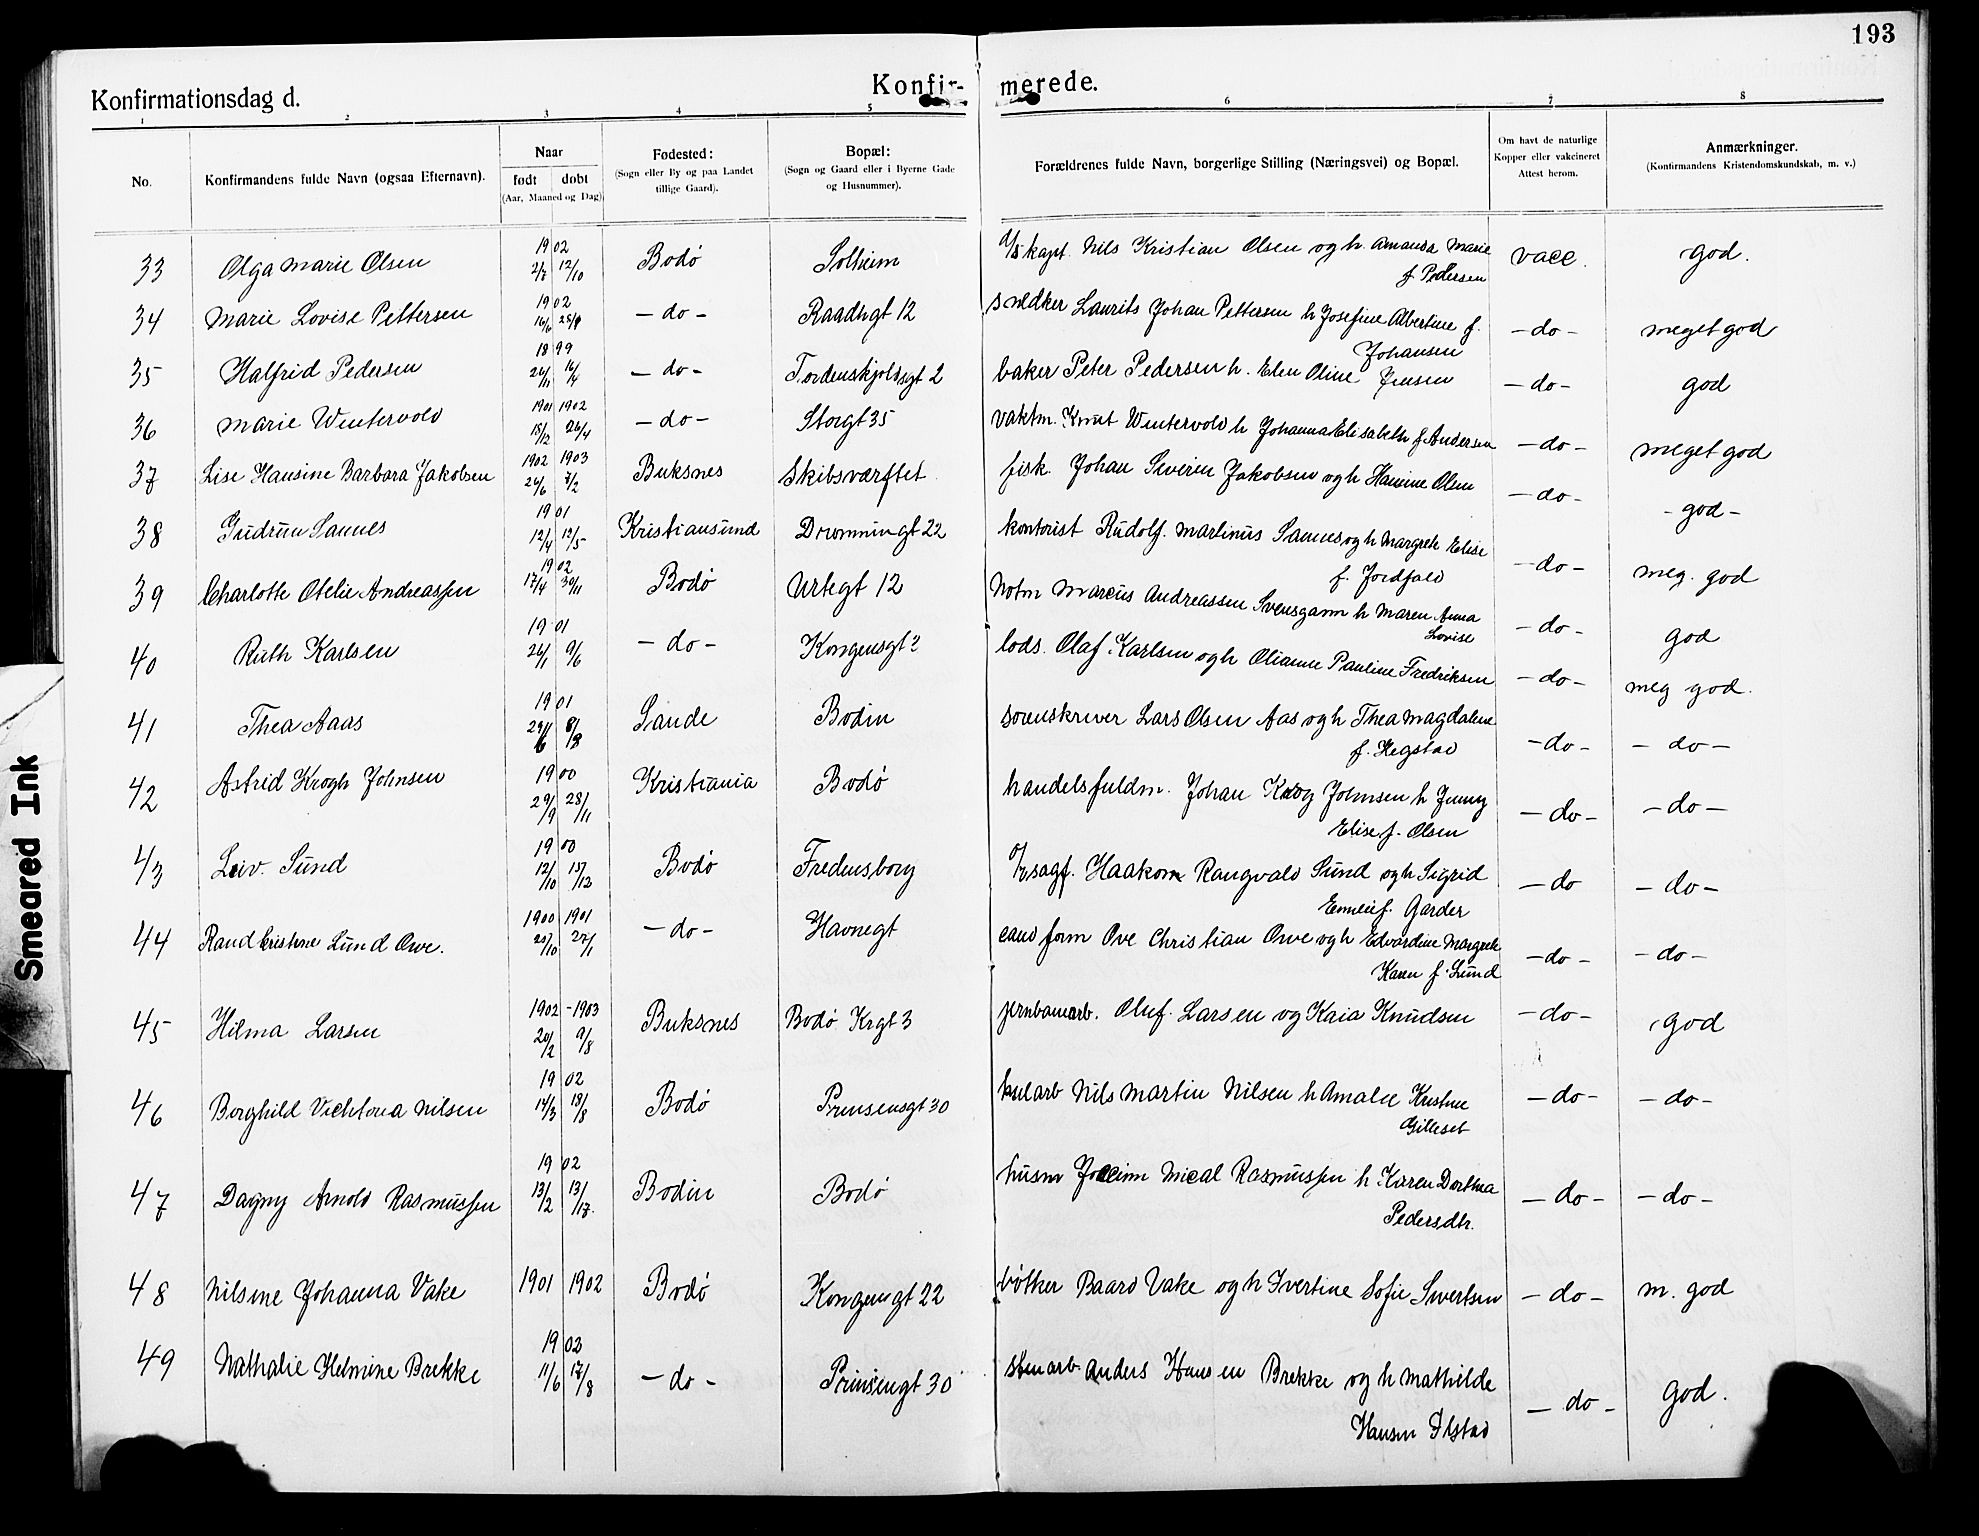 193
Konfirmationsdag d.
Konfir-
merede.
1 2 3 4 5 6 7 8
No.
Konfirmandens fulde Navn (ogsaa Efternavn).
Naar
født døbt
(Aar, Maaned og Dag)
Fødested:
(Sogn eller By og paa Landet
tillige Gaard).
Bopæl:
(Sogn og Gaard eller i Byerne Gade
og Husnummer).
Forældrenes fulde Navn, borgerlige Stilling (Næringsvei) og Bopæl.
Om havt de naturlige
Kopper eller vakcineret
Attest herom.
Anmærkninger.
(Konfirmandens Kristendomskundskab, m. v.)
33 Olga Marie Olsen 1902 2/7 12/10 Bodø Solheim skapt. Nils Kristian Olsen og h. Amanda Marie vacc. god.
f Pedersen
34 Marie Lovise Pettersen 1902 16/6 25/9 - do - Raadhgt 12 snedker Laurits Johan Pettersen h Josefine Albertine f. - do - meget god
Johansen
35 Halfrid Pedersen 1899 26/11 16/4 - do - Tordenskjoldsgt 2 baker Peter Pedersen h. Elen Oline Jensen - do - god
36 Marie Wintervold 1901 1902 15/12 26/4 - do - Storgt 35 vaktm. Knut Wintervold h Johanna Elisabeth f Andersen - do - meget god
37 Lise Hansine Barbara Jakobsen 1902 1903 26/6 7/2 Buksnes Skibsværftet fisk. Johan Severin Jakobsen og h Hansine Olsen - do - - god -
38 Gudrun Sannes 1901 12/4 12/5 Kristiansund Dronningt 22 kontorist Rudolf. Martinus Sannes og h Margreth Elise - do - meg. god
f. Jordfald
39 Charlotte Otelie Andreassen 1902 17/4 30/11 Bodø Urtegt 12 Notm Marcus Andreassen Svensgam h Maren Anna - do - god
Lovise
40 Ruth Karlsen 1901 26/1 9/6 - do - Kongensgt 2 lods. Olaf Karlsen og h Olianne Pauline Fredriksen - do - meg god.
41 Thea Aaas 1901 29/6 8/8 Sande Bodin sorenskriver Lars Olsen Aas og h Thea Magdalene - do - - do -
f. Hegstad
42 Astrid Krogh Johnsen 1900 29/9 28/11 Kristiania Bodø handelsfuldm. Johan Krog Johnsen h Jenny - do - - do -
Elise f. Olsen
43 Liv. Sund 1900 12/10 15/12 Bodø Fredensborg o/r sagf. Haakon Rangvald Sund og h Sigrid - do - do -
Emelie f. Garder
44 Rand Cristine Lund Owe. 1900 1901 25/10 27/1 - do - Havnegt cand farm Ove Christian Owe og h Edvardine Margrete - do - - do -
Karen f. Lund
45 Hilma Larsen 1902 - 1903 20/2 9/8 Buksnes Bodø Krgt 3 jernbanearb. Oluf. Larsen og Kaia Knudsen - do - god
46 Borghild Vichtoria Nilsen 1902 14/3 18/8 Bodø Prinsensgt 30 kularb Nils Martin Nilsen h Amalie Kristine - do - - do -
Gilleset
47 Dagny Arnold Rasmussen 1902 13/2 13/17. Bodin Bodø husm Joccim Mical Rasmussen h Karen Dorthea - do - - do -
Pedersdtr.
48 Nilsine Johanna Vake 1901 1902 Bodø Kongensgt 22 bøtker Baard Vake og h Ivertine Sofie Sivertsen - do - m. god
49 Nathalie Helmine Brekke 1902 11/6 17/8 - do - Prinsengt 30 stenarb. Anders Hansen Brekke og h Mathilde - do - god.
Hansen Ilstad
Smeared Ink